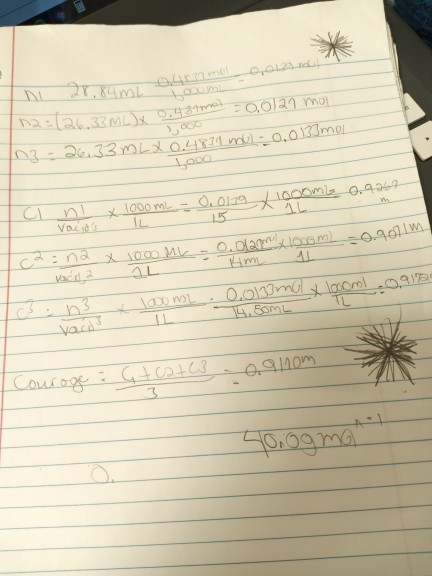 n1 28.84mL 0.4839mol / 1,000mL = 0.0129 mol
n2 = (26.33mL) x 0.4839mol / 1,000 = 0.0127 mol
n3 = 26.33mL x 0.4839 mol / 1,000 = 0.0133mol
C1 n1 / Vacid1 x 1000mL / 1L = 0.0139 / 15 x 1000mL / 1L = 0.9267 m
C2 = n2 / Vacid,2 x 1000 mL / 1L = 0.0127mol / 14mL x 1000ml / 1L = 0.9071m
C3 = n3 / Vacid3 x 1000mL / 1L = 0.0133mol / 14.50mL x 1000ml / 1L = 0.9172
Caverage = C1+C2+C3 / 3 = 0.9170m
40.09mol^-1
0.